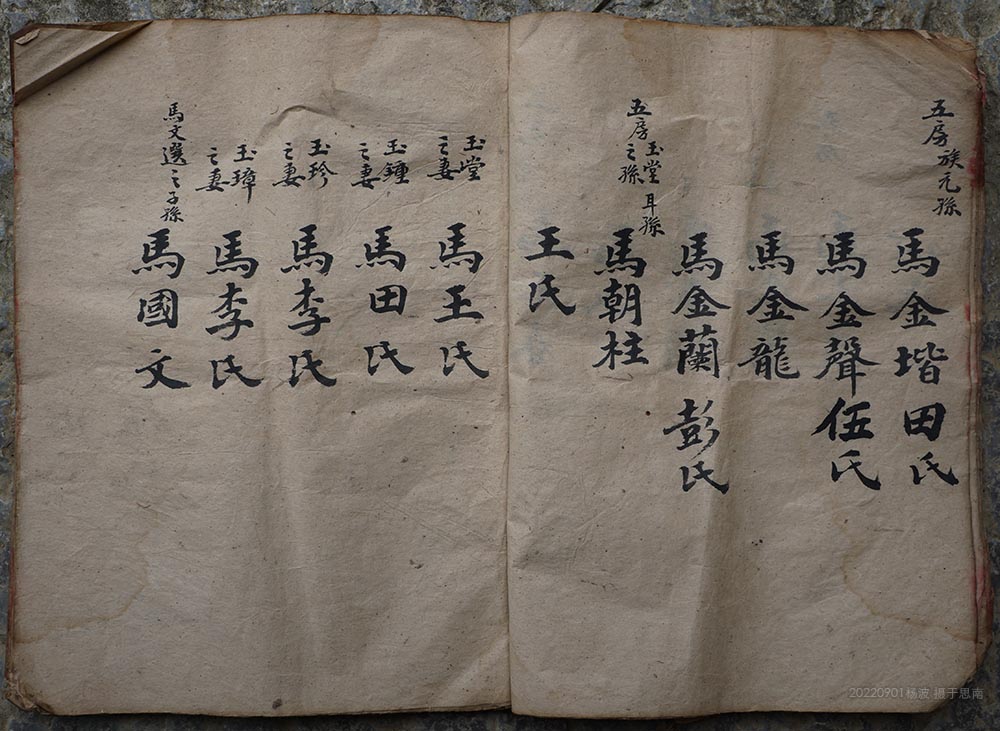 五房族元孫
馬金堦田氏
馬金聲伍氏
馬金龍
馬金蘭彭氏
五房玉堂之孫
耳孫
馬朝柱
王氏
玉堂之妻
馬王氏
玉鍾之妻
馬田氏
玉珍之妻
馬李氏
玉璋之妻
馬李氏
馬文選之子孫
馬國文
20220901杨波 摄于思南